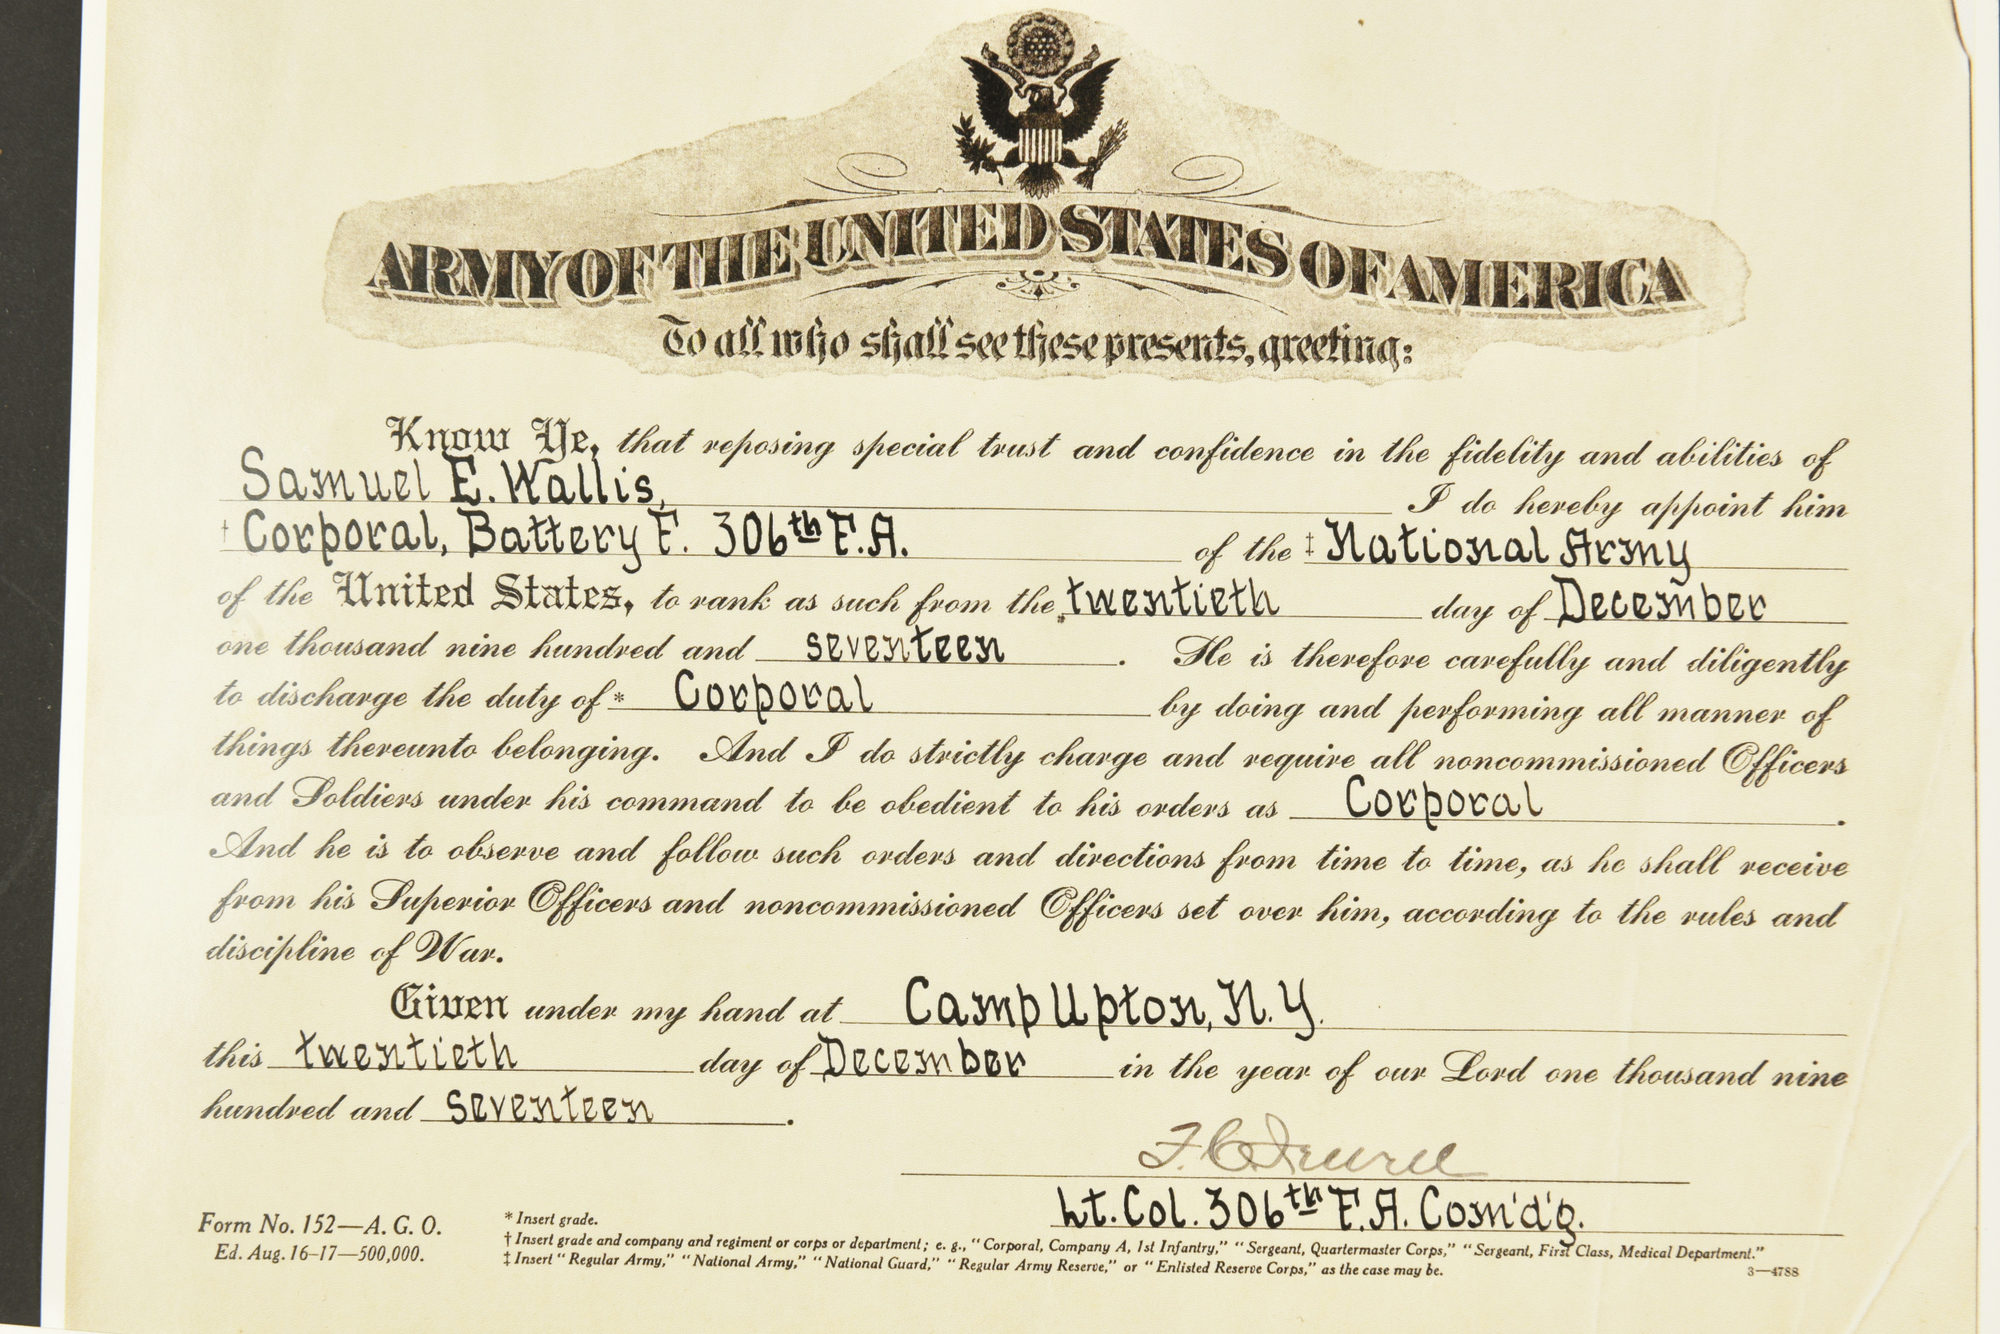 ARMY OF THE UNITED STATES OF AMERICA
To all who shall see these presents, greeting:
Know Ye, that reposing special trust and confidence in the fidelity and abilities of
Samuel E. Wallis, I do hereby appoint him
† Corporal, Battery F. 306th F.A. of the ‡ National Army
of the United States, to rank as such from the twentieth day of December
one thousand nine hundred and seventeen. He is therefore carefully and diligently
to discharge the duty of * Corporal by doing and performing all manner of
things thereunto belonging. And I do strictly charge and require all noncommissioned Officers
and Soldiers under his command to be obedient to his orders as Corporal.
And he is to observe and follow such orders and directions from time to time, as he shall receive
from his Superior Officers and noncommissioned Officers set over him, according to the rules and
discipline of War.
Given under my hand at Camp Upton, N.Y.
this twentieth day of December in the year of our Lord one thousand nine
hundred and seventeen.
Lt. Col. 306th F.A. Com'd'g.
Form No. 152—A. G. O.
Ed. Aug. 16-17—500,000.
* Insert grade.
† Insert grade and company and regiment or corps or department; e. g., "Corporal, Company A, 1st Infantry," "Sergeant, Quartermaster Corps," "Sergeant, First Class, Medical Department."
‡ Insert "Regular Army," "National Army," "National Guard," "Regular Army Reserve," or "Enlisted Reserve Corps," as the case may be.
3—4788